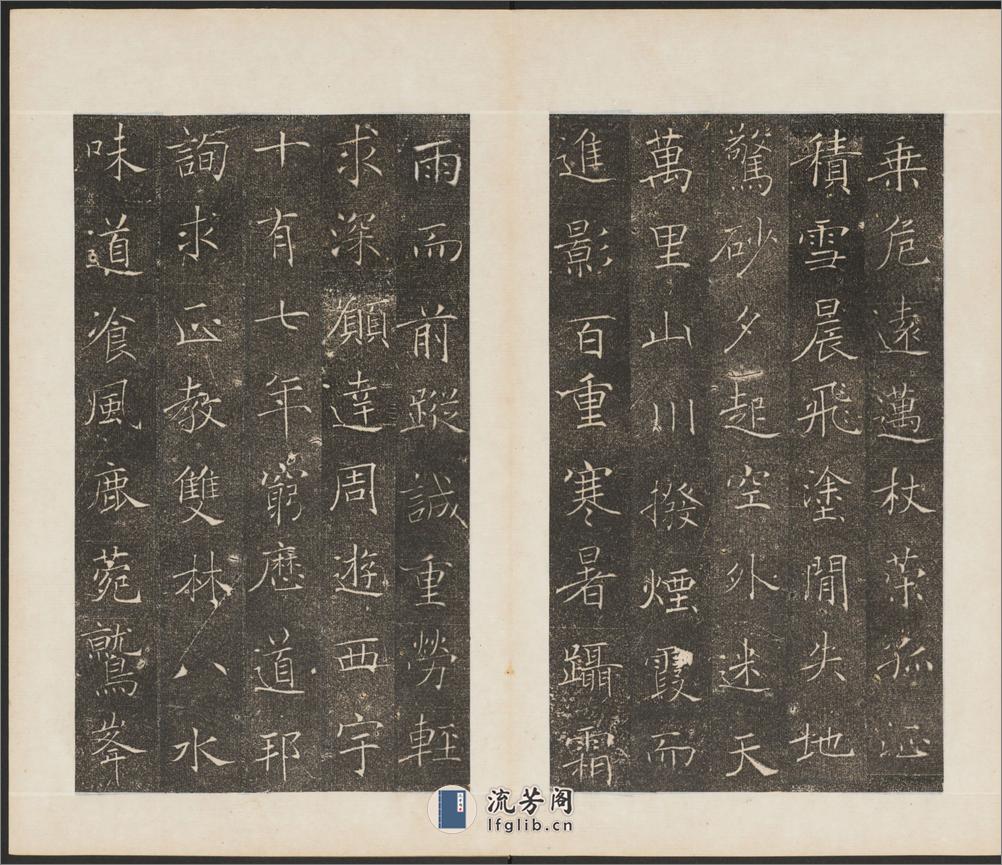 乗危遠邁杖荣孤征
積雪晨飛塗閒失地
驚砂夕起空外迷天
萬里山川撥煙霞而
進影百重寒暑躡霜
雨而前蹤誠重勞輕
求深願達周遊西宇
十有七年窮歷道邦
詢求正教雙林八水
味道飡風鹿菀鷲峯
流芳阁
lfglib.cn